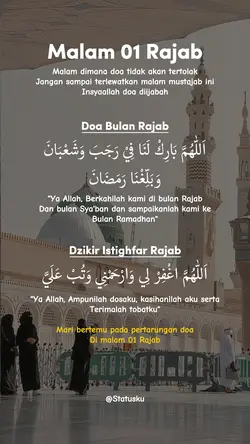 Malam 01 Rajab
Malam dimana doa tidak akan tertolak
Jangan sampai terlewatkan malam mustajab ini
Insyaallah doa diijabah
Doa Bulan Rajab
اَللّٰهُمَّ بَارِكْ لَنَا فِي رَجَبَ وَشَعْبَانَ
وَبَلِّغْنَا رَمَضَانَ
"Ya Allah, Berkahilah kami di bulan Rajab
Dan bulan Sya'ban dan sampaikanlah kami ke
Bulan Ramadhan"
Dzikir Istighfar Rajab
اَللّٰهُمَّ اغْفِرْ لِي وَارْحَمْنِي وَتُبْ عَلَيَّ
"Ya Allah, Ampunilah dosaku, kasihanilah aku serta
Terimalah tobatku"
Mari bertemu pada pertarungan doa
Di malam 01 Rajab
@Statusku